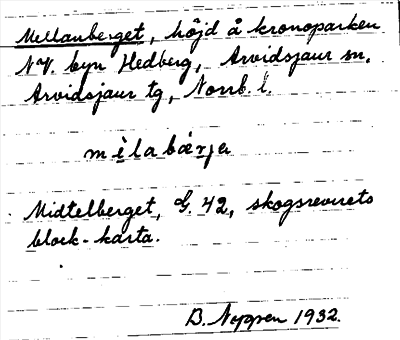 Mellanberget, höjd å kronoparken
NV. byn Hedberg, Arvidsjaur sn,
Arvidsjaur tg, Norrb. l.
mèlabærja
Midtelberget, G. 42, skogsrevirets
block-karta.
B. Nygren 1932.